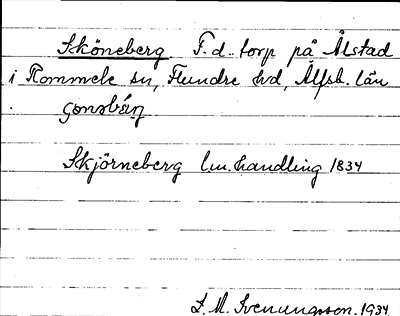 Sköneberg F.d. torp på Ålstad
i Rommele sn, Flundre hd, Älfsb. län
Skjörneberg lm.handling 1834
S. M. Svenungsson. 1934